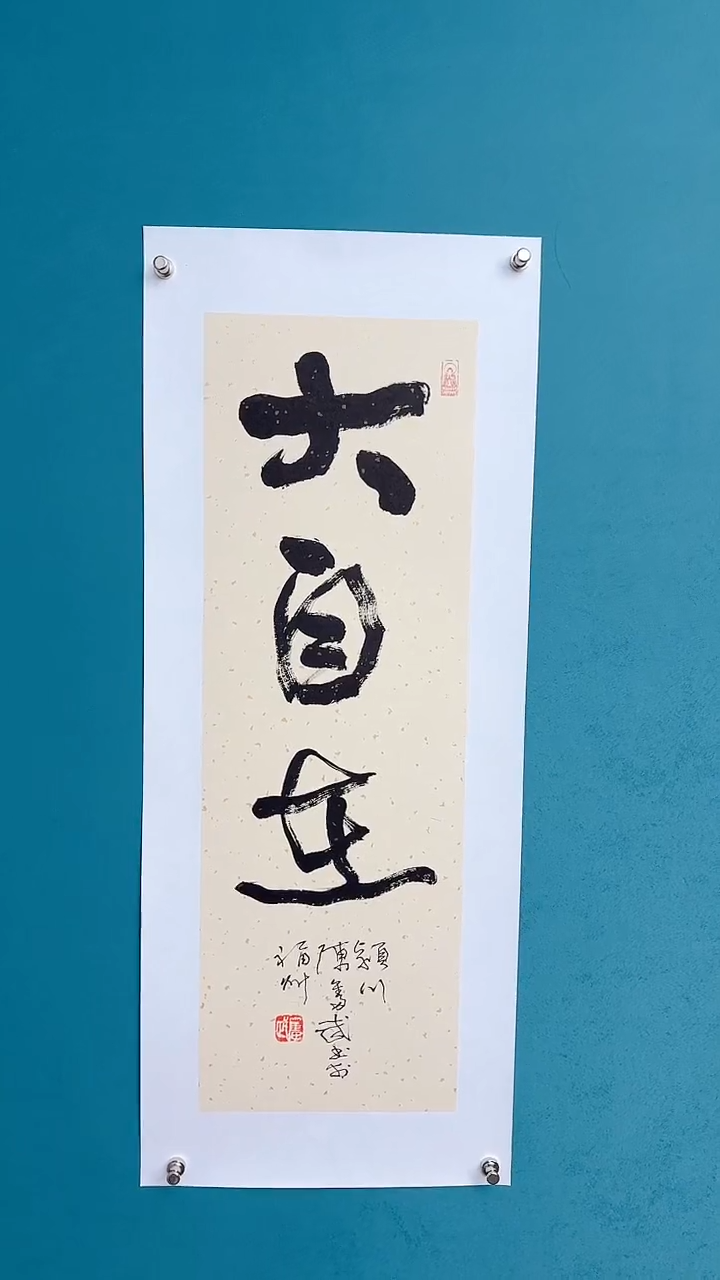 大自在
潁川
陳奮武書於
福州